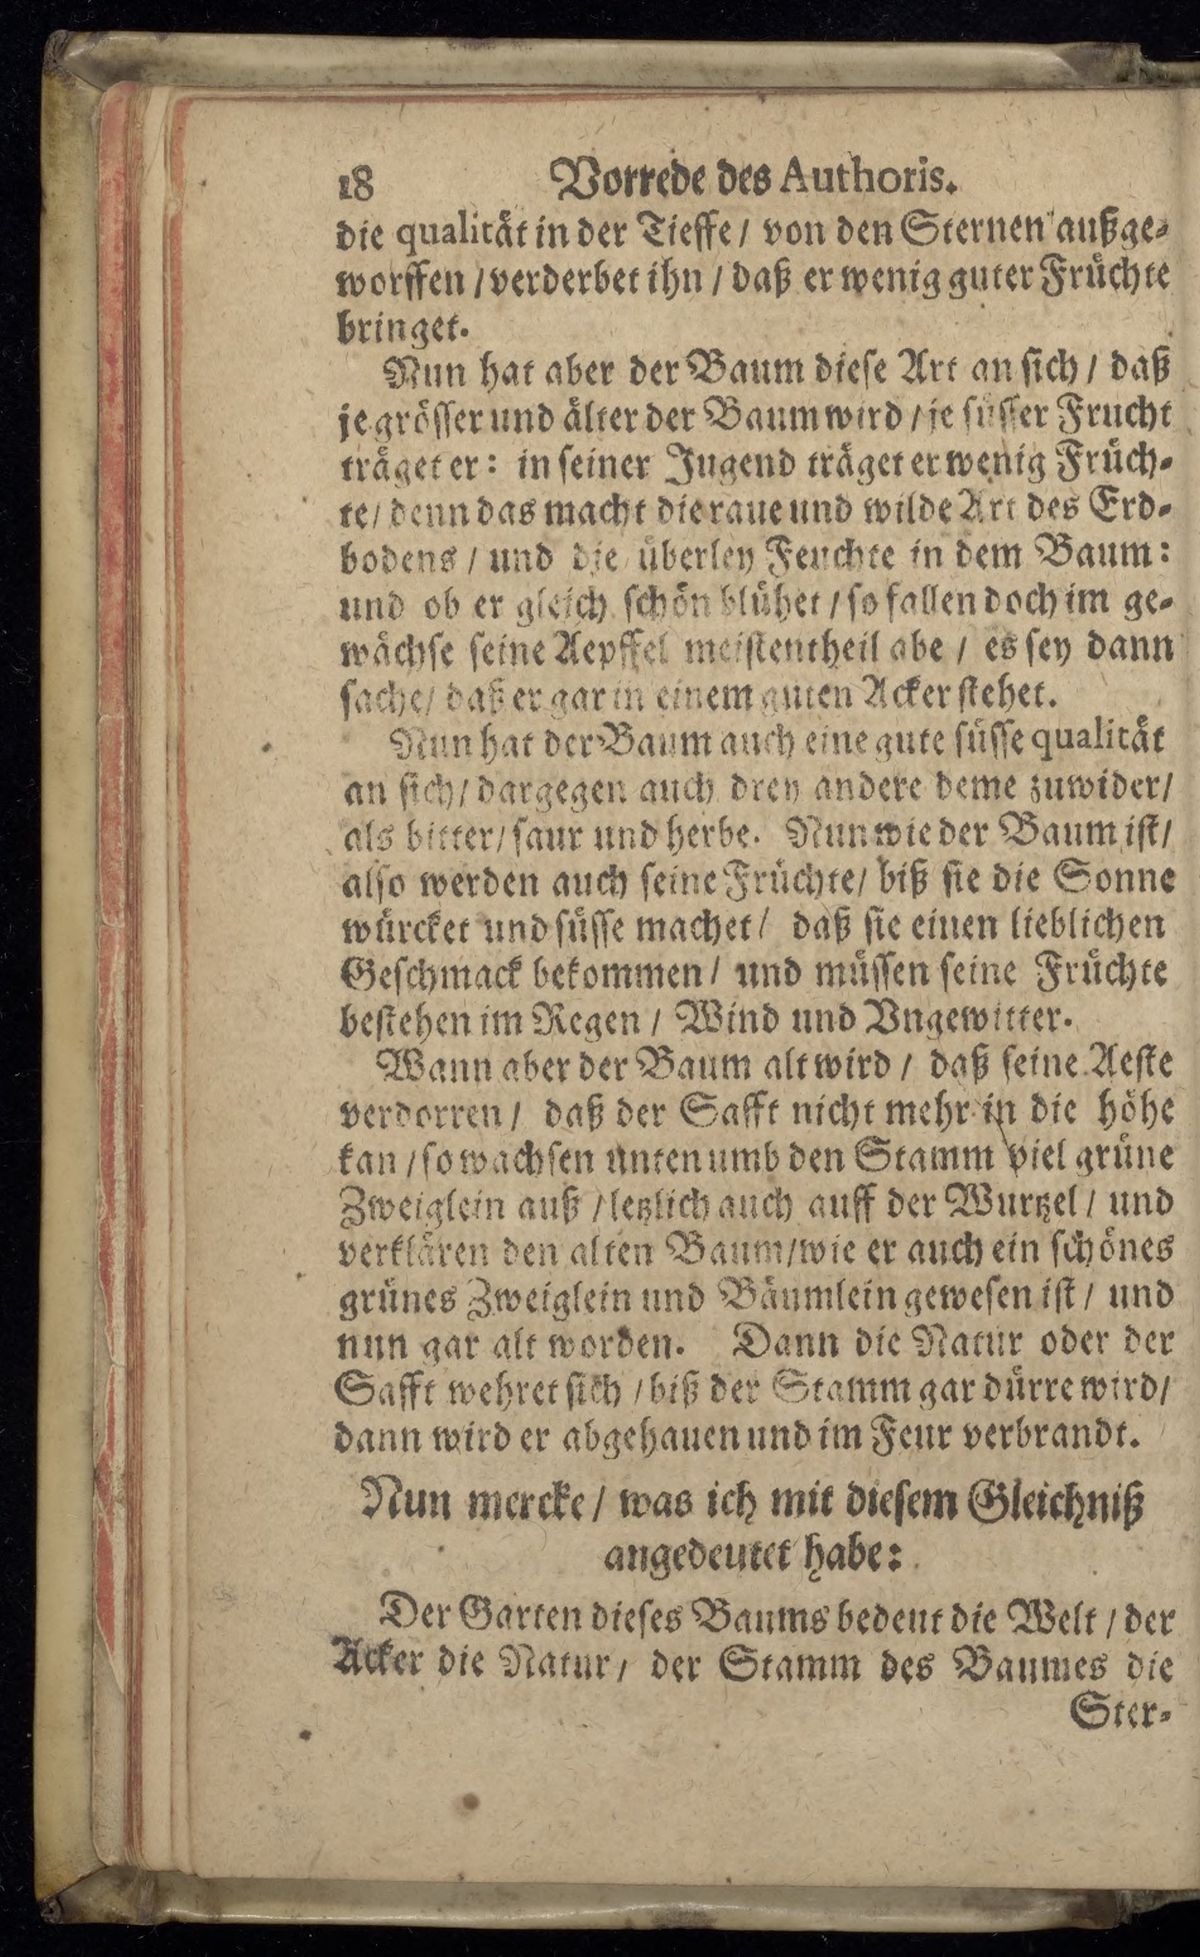 18 Vorrede des Authoris.
die qualität in der Tieffe / von den Sternen außge-
worffen / verderbet ihn / daß er wenig guter Früchte
bringet.
Nun hat aber der Baum diese Art an sich / daß
je grösser und älter der Baum wird / je süsser Frucht
träget er: in seiner Jugend träget er wenig Früch-
te / denn das macht die raue und wilde Art des Erd-
bodens / und die überley Feuchte in dem Baum:
und ob er gleich schön blühet / so fallen doch im ge-
wächse seine Aepffel meistentheil abe / es sey dann
sache / daß er gar in einem guten Acker stehet.
Nun hat der Baum auch eine gute süsse qualität
an sich / dargegen auch drey andere deme zuwider /
als bitter / saur und herbe. Nun wie der Baum ist /
also werden auch seine Früchte / biß sie die Sonne
würcket und süsse machet / daß sie einen lieblichen
Geschmack bekommen / und müssen seine Früchte
bestehen im Regen / Wind und Vngewitter.
Wann aber der Baum alt wird / daß seine Aeste
verdorren / daß der Safft nicht mehr in die höhe
kan / so wachsen unten umb den Stamm viel grüne
Zweiglein auß / letzlich auch auff der Wurtzel / und
verklären den alten Baum / wie er auch ein schönes
grünes Zweiglein und Bäumlein gewesen ist / und
nun gar alt worden. Dann die Natur oder der
Safft wehret sich / biß der Stamm gar dürre wird /
dann wird er abgehauen und im Feur verbrandt.
Nun mercke / was ich mit diesem Gleichniß
angedeutet habe:
Der Garten dieses Baums bedeut die Welt / der
Acker die Natur / der Stamm des Baumes die
Ster-